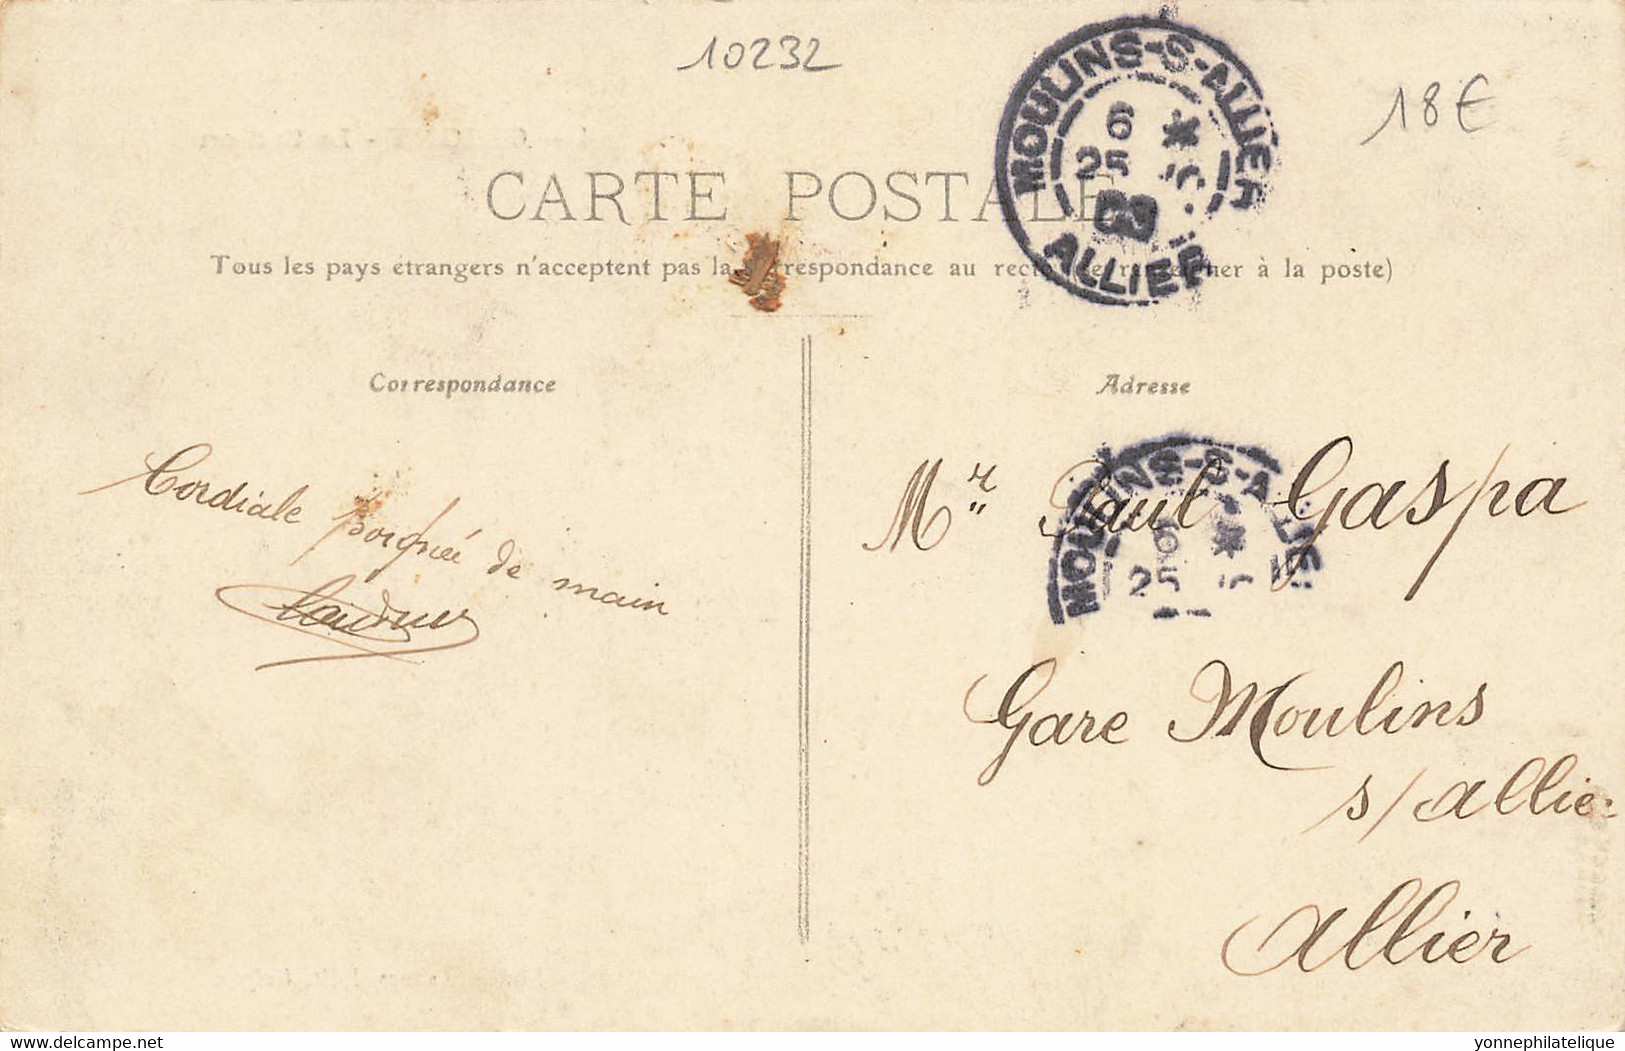 10232
18€
MOULINS-S-ALLIER
6 *
25
ALLIER
CARTE POSTALE
Tous les pays étrangers n'acceptent pas la respondance au recto er à la poste)
Correspondance
Adresse
Cordiale poignée de main
MOULINS-S-ALLIE
6 *
25
Mr Paul Gaspa
Gare Moulins
s/ Allier
Allier
Delcampe.net
yonnephilatelique